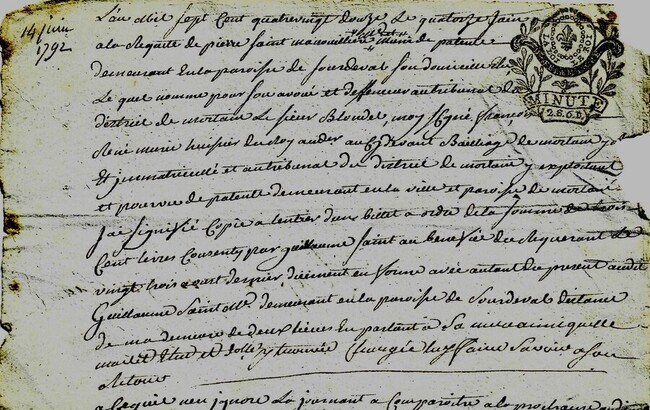 14 juin
1792
L'an Mil sept Cent quatrevingt douze Le quatorze juin
a la Requete de pierre Saint manouvrier
demeurant En la paroisse de Sourdeval Son domicile
Le quel nomme pour Son avoué et deffenseur au tribunal du
district de mortain Le Sieur Blondel, moy Signé françois
René marie huissier du Roy au Cydevant Bailliage de mortain y
Et jmmatriculé et au tribunal du district de mortain y exploitant
et pourvu de patente demeurant en la ville et paroisse de mortain
jai Signifié Copie a lentier dun billet a ordre de la Somme de trois
Cent livres Consenty par guillaume Saint au Benefice du Requerant Le
vingt trois aoust dernier duement en forme avec autant du present audit
Guillaume Saint demeurant en la paroisse de Sourdeval distance
de ma demeure de deux lieues En parlant a Sa
trouvée Chargée luy faire Savoir a Son
Retour
a Lequel nen jgnore La journant a Comparoitre a la prochaine
LA LOI LE ROI
MINUTE
2.S.6.D.